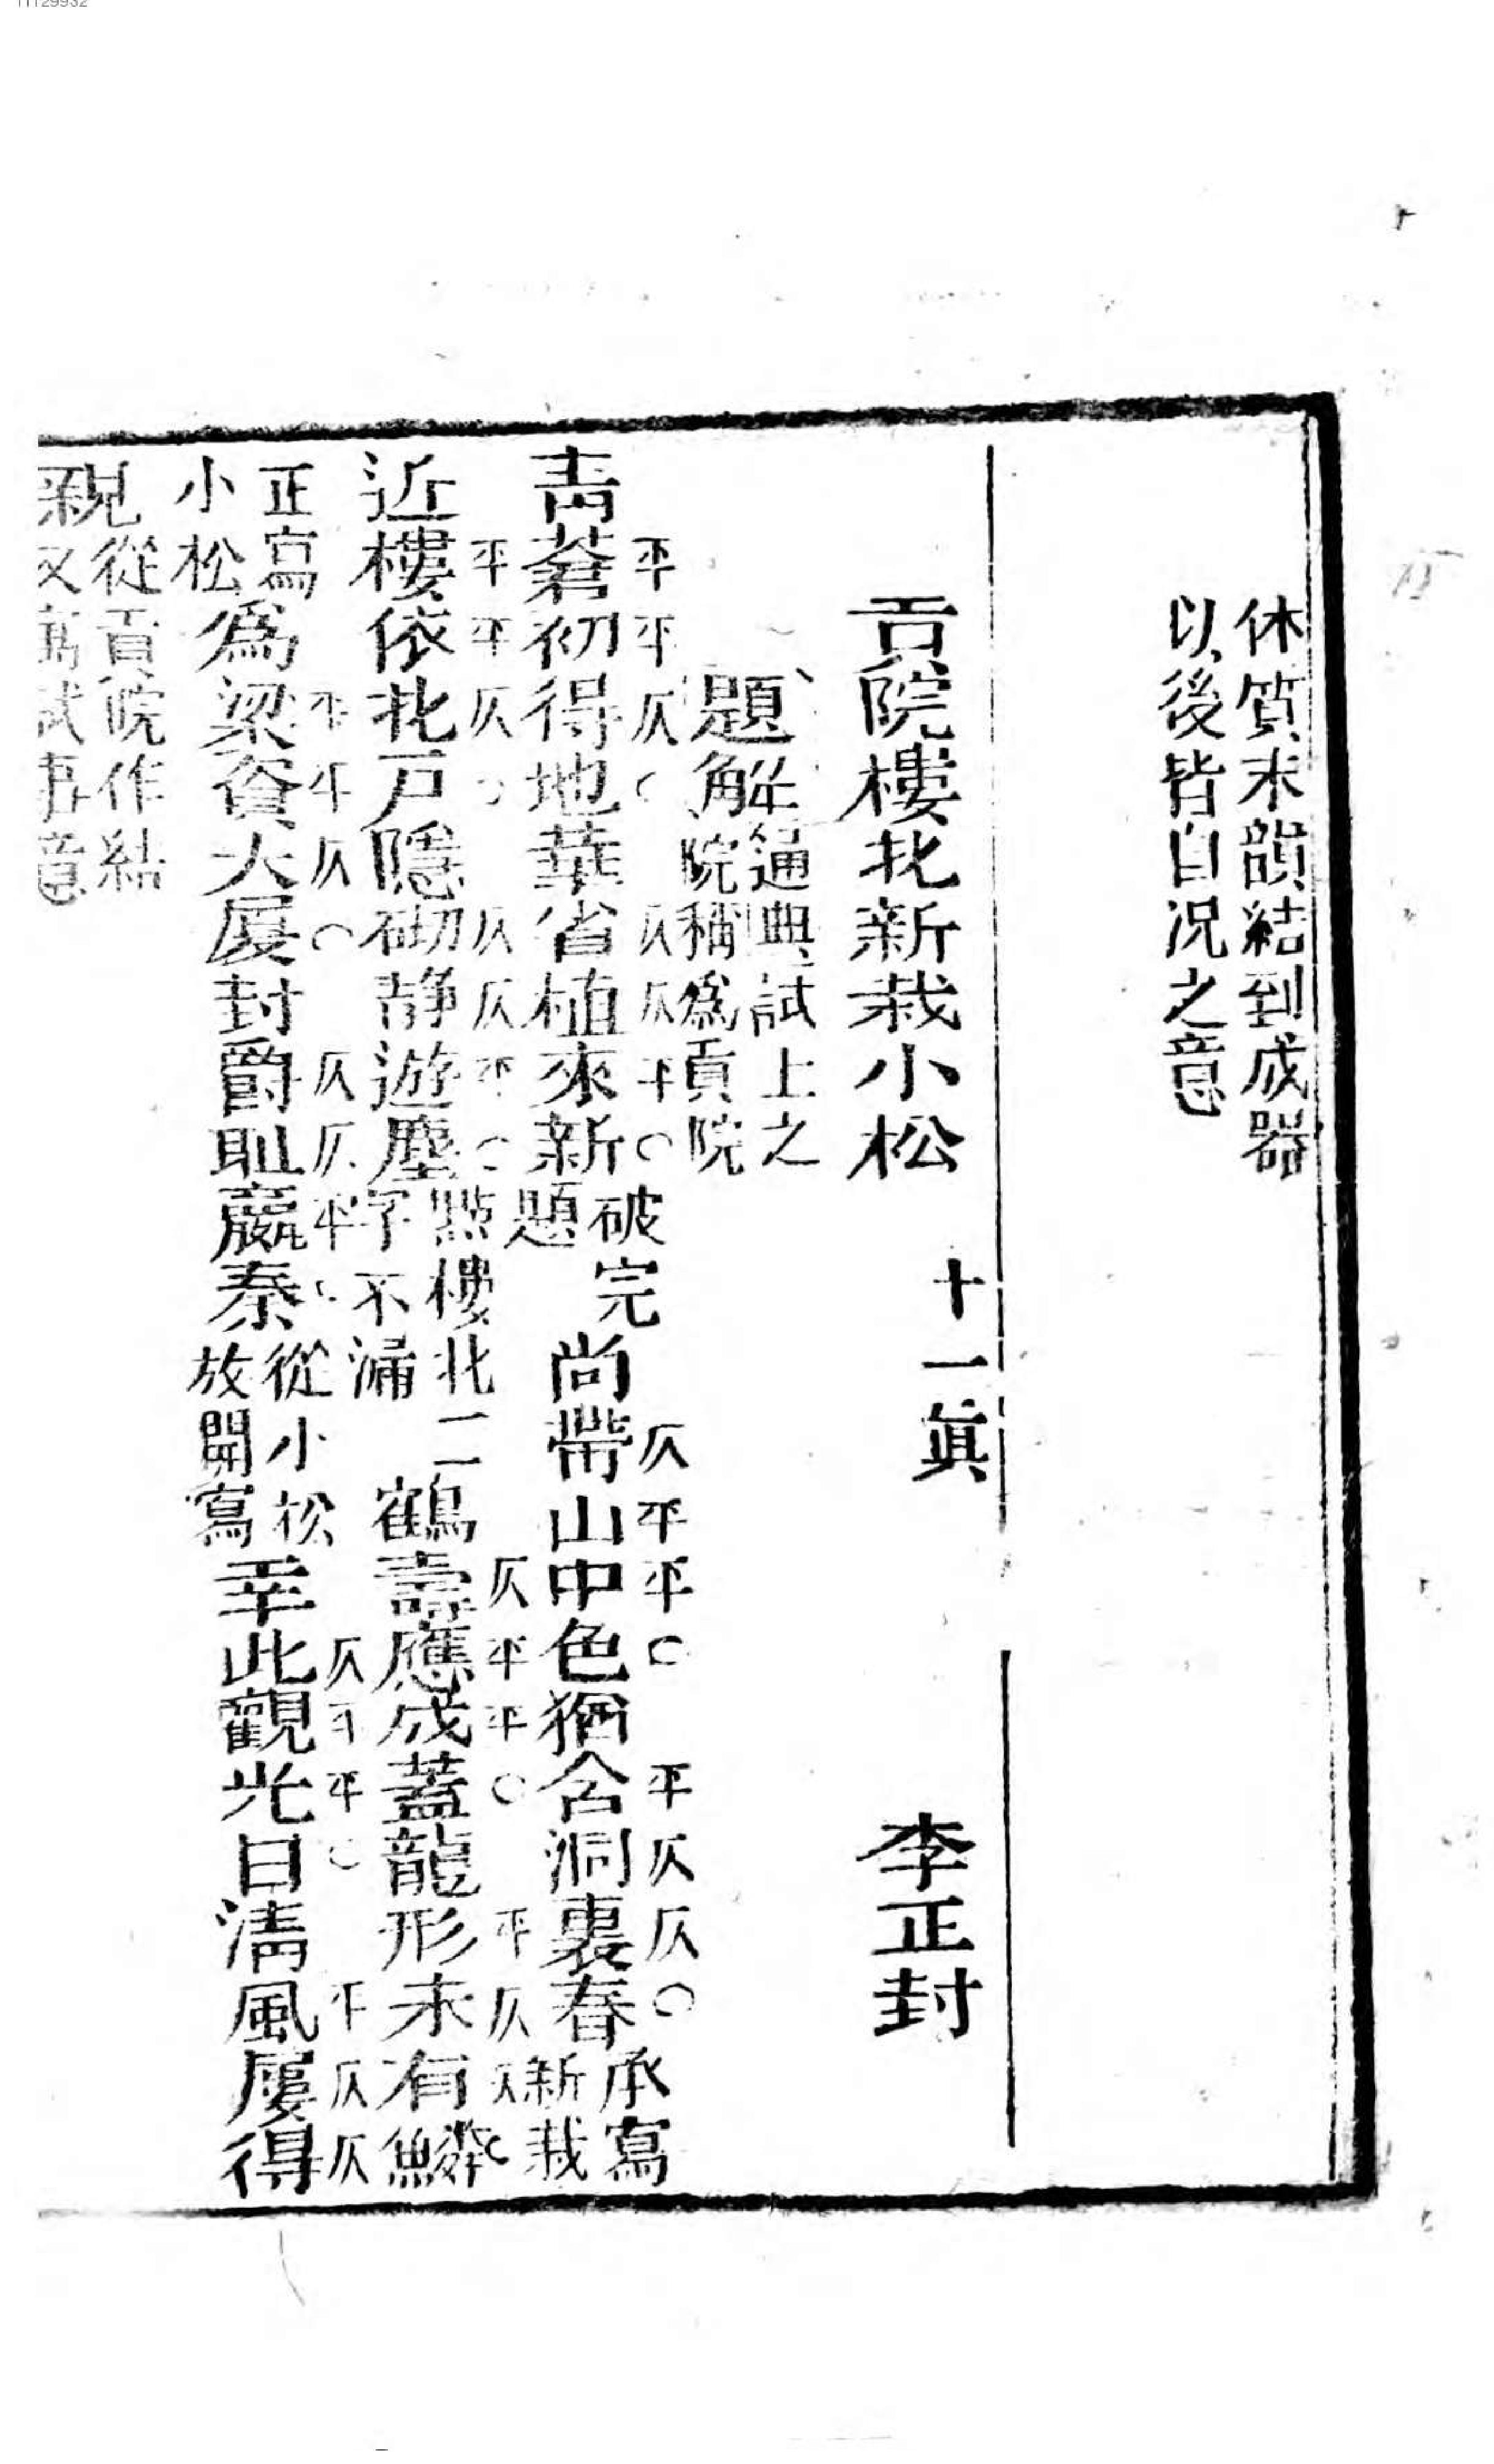 11129932
休質末韻結到成器
以後皆自况之意
貢院樓北新栽小松 十一眞 李正封
題解通典試上之
院稱爲貢院
平平仄○仄仄平○ 仄平平○平仄仄○
靑蒼初得地華省植來新破完題尚帶山中色猶含洞裏春承寫新栽
平平仄○仄仄平○ 仄平平○平仄仄○
近樓依北戸隱砌静遊塵點樓北二字不漏鶴壽應成蓋龍形未有鱗
平平仄○仄仄平○ 仄平平○平仄仄
正寫小松爲梁資大厦封爵耻嬴秦從小松放開寫幸此觀光日清風屢得
親從貢院作結又寓試事意